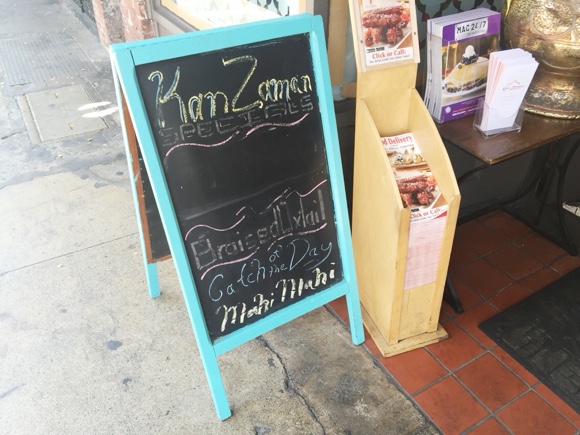 Kan Zaman
SPECIALS
Braised Oxtail
Catch of the Day
Mahi Mahi
Click or Call!
MAC 24/7
Food Delivery
Click or Call!